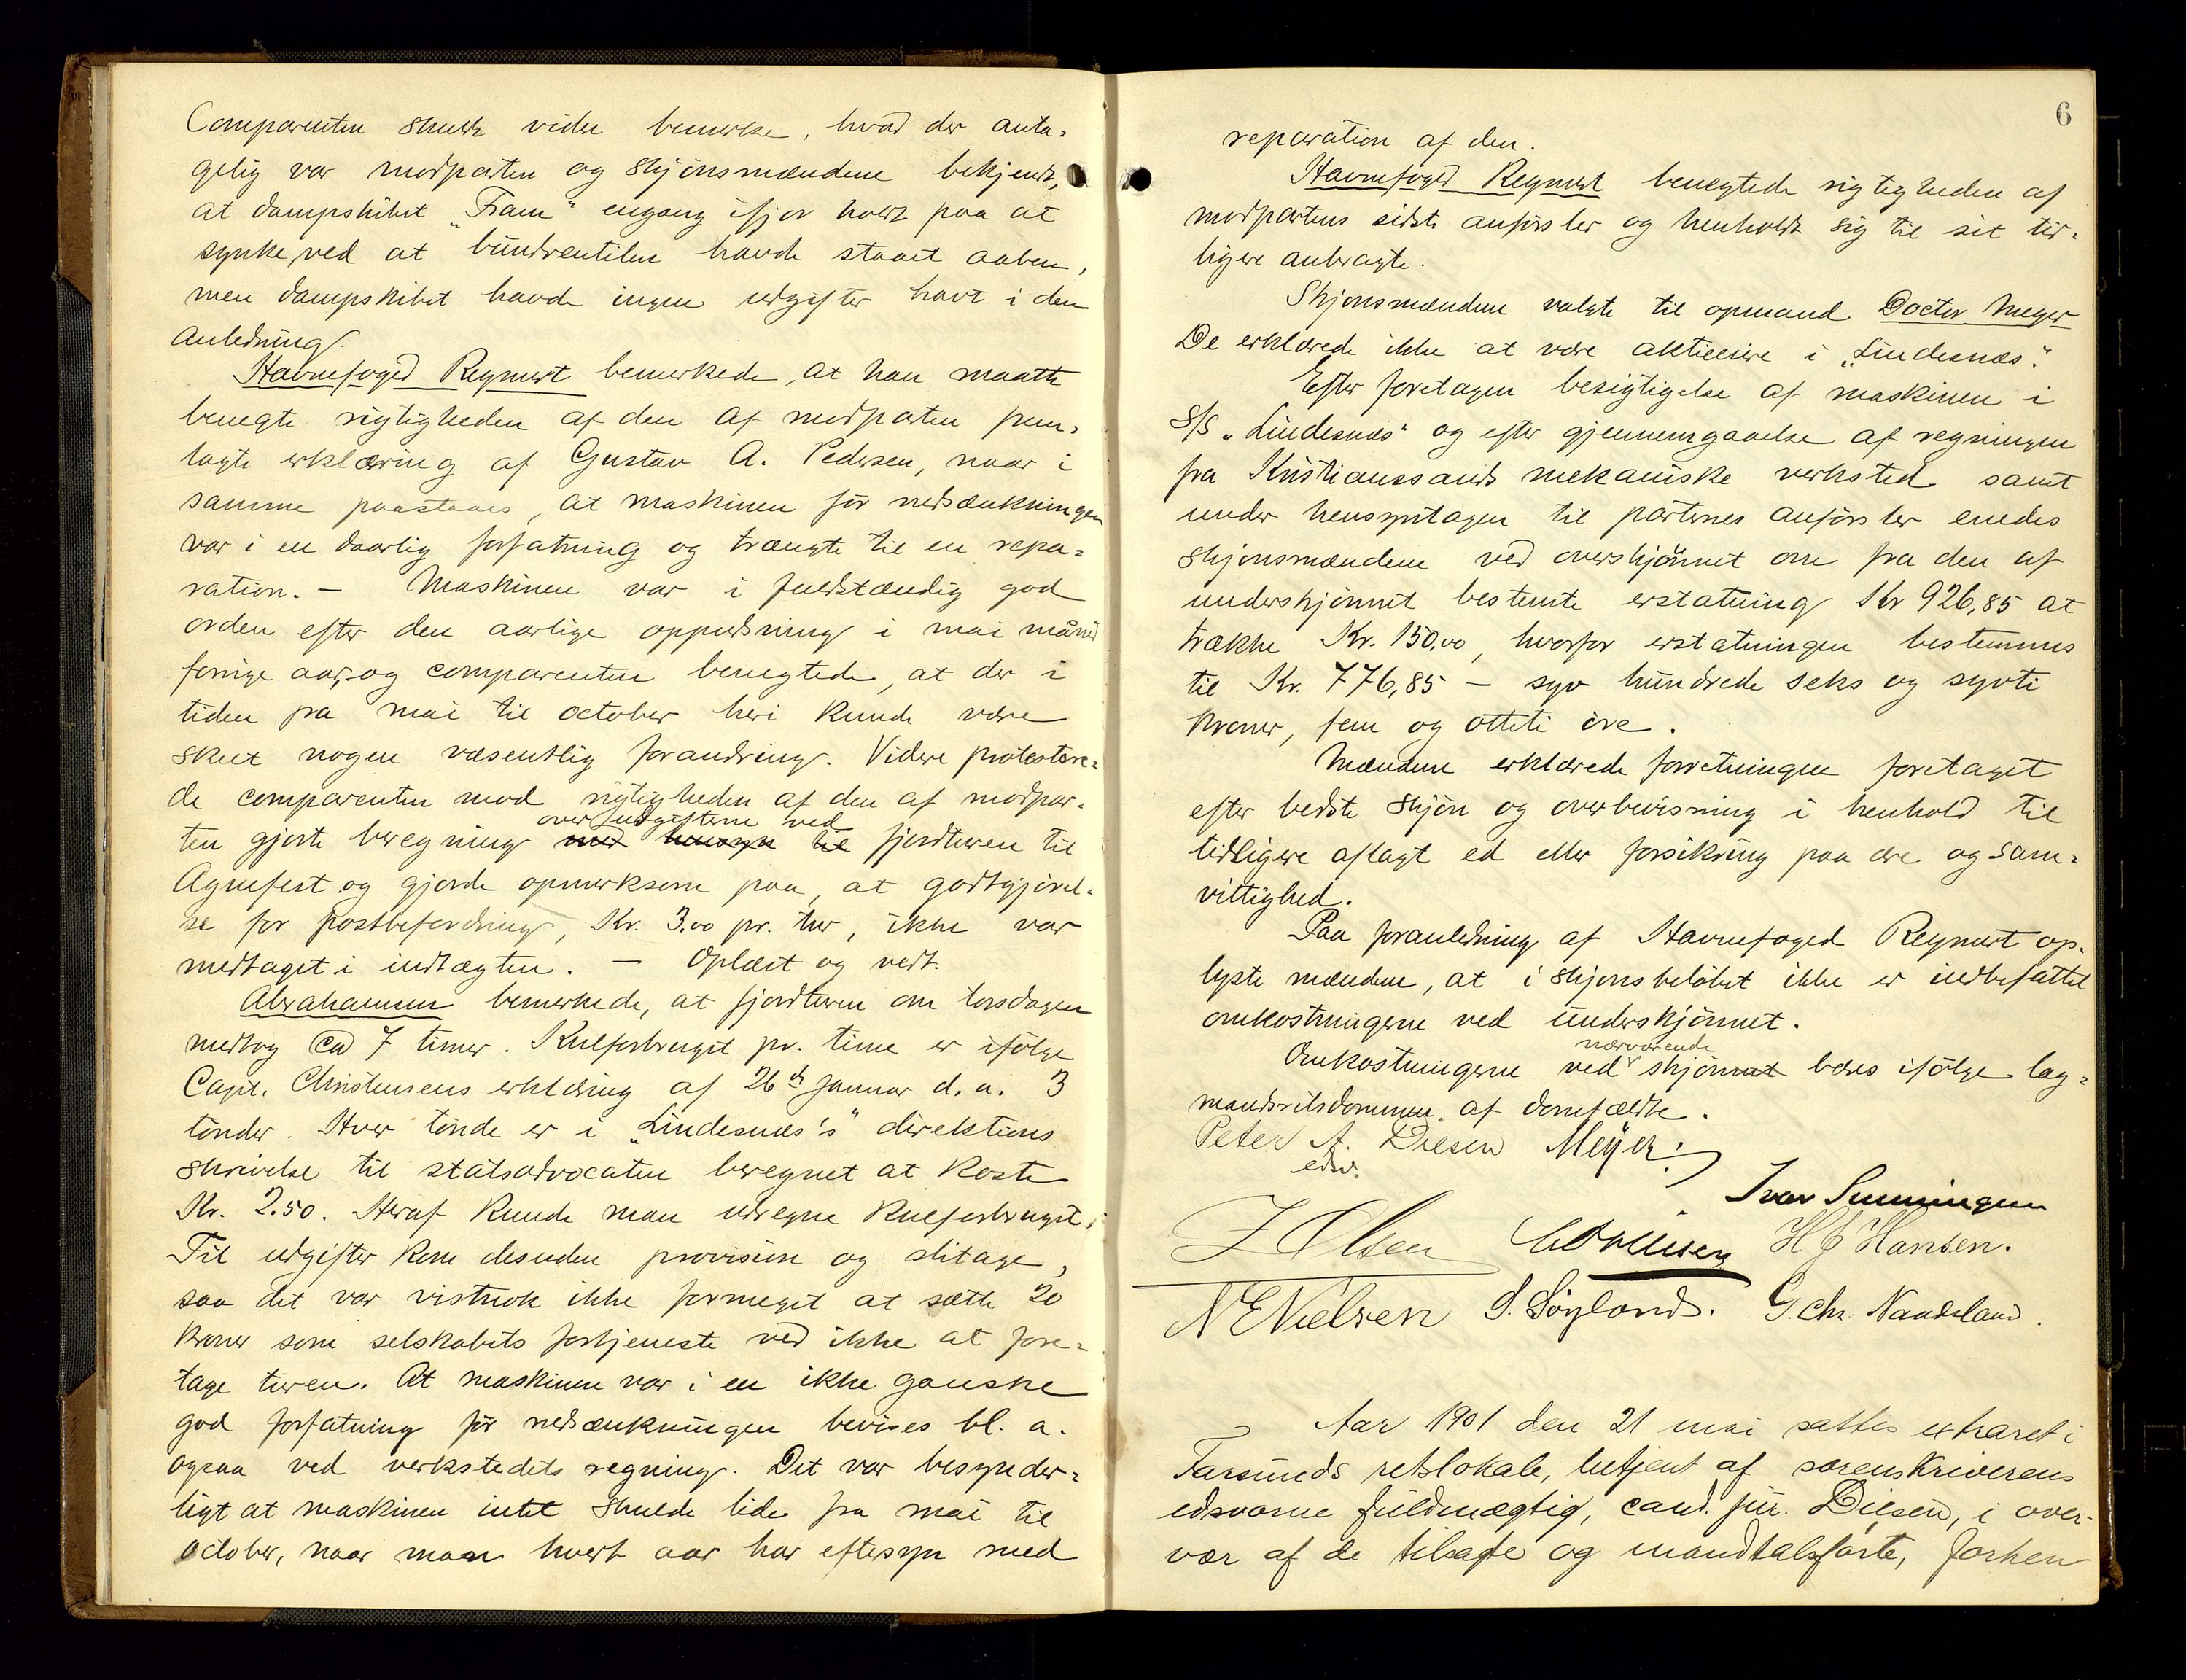 Comparenten skulde videre bemerke, hvad der anta-
gelig var modparten og skjönsmændene bekjendt,
at dampskibet „Fram" engang ifjor holdt paa at
synke, ved at bundventilen havde staaet aaben,
men dampskibet havde ingen udgifter havt i den
anledning.
Havnefoged Reymert bemerkede, at han maatte
benegte rigtigheden af den af modparten frem-
lagte erklæring af Gustav A. Pedersen, naar i
samme paastaaes, at maskinen för nedsænkningen
var i en daarlig forfatning og trængte til en repa-
ration. – Maskinen var i fuldstændig god
orden efter den aarlige oppudsning i mai måned
forrige aar, og comparenten benegtede, at der i
tiden fra mai til october heri kunde være
skeet nogen væsentlig forandring. Videre protestere-
de comparenten mod rigtigheden af den af modpar-
over udgifterne ved
ten gjorte beregning med hensyn til fjordturen til
Agnefest og gjorde opmerksom paa, at godtgjörel-
se for postbefordring, Kr. 3.00 pr. tur, ikke var
medtaget i indtægten. – Oplæst og vedt.
Abrahamsen bemerkede, at fjordturen om torsdagen
medtog ca 7 timer. Kulforbruget pr. time er ifölge
Capt. Christensens erklæring af 26de Januar d. a. 3
tönder. Hver tönde er i „Lindesnæs's" direktions
skrivelse til statsadvocaten beregnet at koste
Kr. 2.50. Heraf kunde man udregne kulforbruget.
Til udgifter kom desuden provision og slitage,
saa det var vistnok ikke formeget at sætte 20
kroner som selskabets fortjeneste ved ikke at fore-
tage turen. At maskinen var i en ikke ganske
god forfatning för nedsænkningen bevises bl. a.
ogsaa ved verkstedets regning. Det var besynder-
ligt at maskinen intet skulde lide fra mai til
october, naar man hvert aar har eftersyn med
6
reparation af den.
Havnefoged Reymert benegtede rigtigheden af
modpartens sidste anförsler og henholdt sig til sit tid-
ligere anbragte.
Skjönsmændene valgte til opmand Doctor Meyer
De erklærede ikke at være aktieeiere i „Lindesnæs".
Efter foretagen besigtigelse af maskinen i
S/S „Lindesnæs" og efter gjennemgaaelse af regningen
fra Kristianssands mekaniske verksted samt
under hensyntagen til parternes anförsler enedes
skjönsmændene ved overskjönnet om fra den af
underskjönnet bestemte erstatning Kr 926,85 at
trække Kr. 150,00, hvorfor erstatningen bestemmes
til Kr. 776,85 – syv hundrede seks og sytti
kroner, fem og otteti öre.
Mændene erklærede forretningen foretaget
efter bedste skjön og overbevisning i henhold til
tidligere aflagt ed eller forsikring paa ære og sam-
vittighed.
Paa foranledning af Havnefoged Reymert op-
lyste mændene, at i skjönsbelöbet ikke er indbefattet
omkostningerne ved underskjönnet.
nærværende
Omkostningerne ved skjönnet bæres ifölge lag-
mandsretsdommen af domfældte.
Peter A. Diesen Meyer.
edsv.
Ivar Sunningen
J Olsen HJ Hansen.
N E Nielsen S. Söyland. G. Chr. Naadeland.
Aar 1901 den 21 mai sattes extraret i
Farsunds retslokale, betjent af sorenskriverens
edsvorne fuldmægtig, cand. jur. Diesen, i over-
vær af de tilsagte og mandtalsförte, forhen